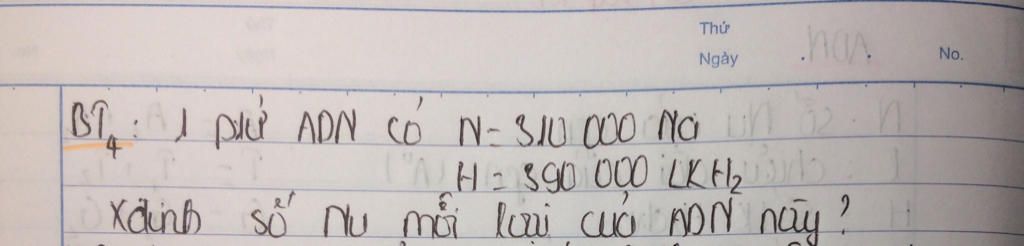 Thứ
Ngày
No.
BT4: 1 ptử ADN có N = 310 000 Nu
H = 390 000 LKH2
Xđịnh số Nu mỗi loại của ADN này?